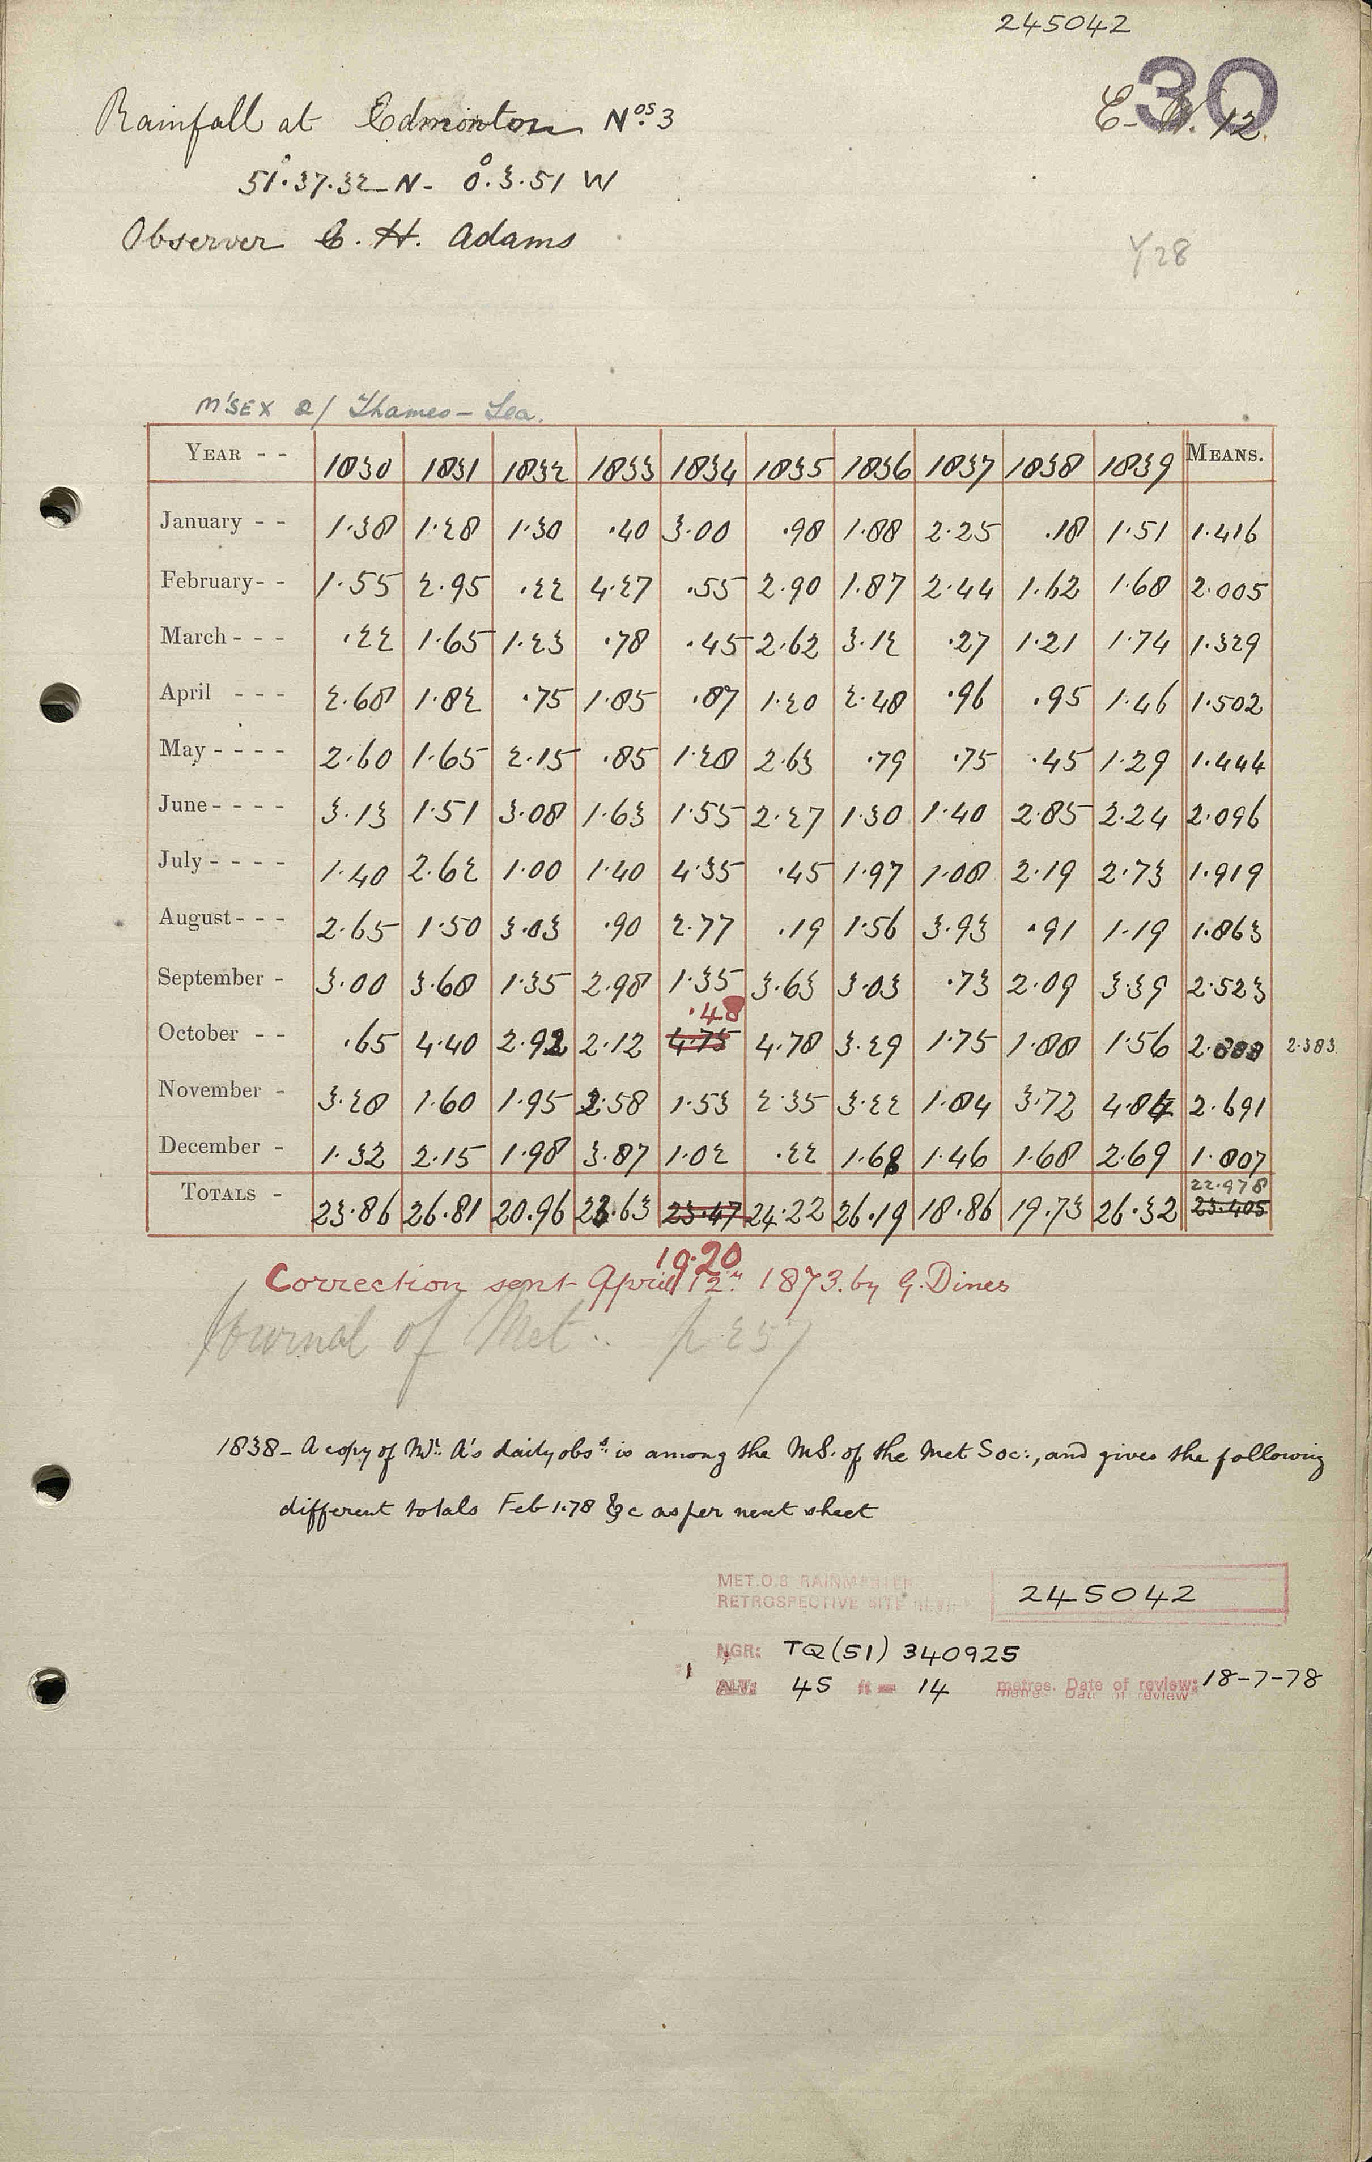 245042
30
E. W. 12.
Rainfall at Edmonton Nos. 3
51°.37.32 N - 0°.3.51 W
Observer C. H. Adams
Y28
M'SEX 2/ Thames - Lea.
YEAR - - 1830 1831 1832 1833 1834 1835 1836 1837 1838 1839 MEANS.
January - - 1.38 1.28 1.30 .40 3.00 .98 1.88 2.25 .18 1.51 1.416
February - - 1.55 2.95 .22 4.27 .55 2.90 1.87 2.44 1.62 1.68 2.005
March - - - .22 1.65 1.23 .78 .45 2.62 3.12 .27 1.21 1.74 1.329
April - - - 2.68 1.82 .75 1.85 .87 1.20 2.48 .96 .95 1.46 1.502
May - - - - 2.60 1.65 2.15 .85 1.28 2.63 .79 .75 .45 1.29 1.444
June - - - - 3.13 1.51 3.08 1.63 1.55 2.27 1.30 1.40 2.85 2.24 2.096
July - - - - 1.40 2.62 1.00 1.40 4.35 .45 1.97 1.08 2.19 2.73 1.919
August - - - 2.65 1.50 3.03 .90 2.77 .19 1.56 3.93 .91 1.19 1.863
September - 3.00 3.68 1.35 2.98 1.35 3.63 3.03 .73 2.09 3.39 2.523
.48
October - - .65 4.40 2.92 2.12 4.75 4.78 3.29 1.75 1.88 1.56 2.383
November - 3.28 1.60 1.95 2.58 1.53 2.35 3.22 1.84 3.72 4.84 2.691
December - 1.32 2.15 1.98 3.87 1.02 .22 1.68 1.46 1.68 2.69 1.807
22.978
TOTALS - 23.86 26.81 20.96 23.63 23.47 24.22 26.19 18.86 19.73 26.32 23.405
19.20
Correction sent April 12th 1873. by G. Dines
Journal of Met. p 257
1838 - A copy of Mr. A's daily obsns. is among the MS. of the Met Soc:, and gives the following
different totals Feb 1.78 &c as per next sheet
MET.O.8 RAINMASTER
RETROSPECTIVE SITE 245042
NGR: TQ(51) 340925
ALT: 45 ft = 14 metres. Date of review: 18-7-78